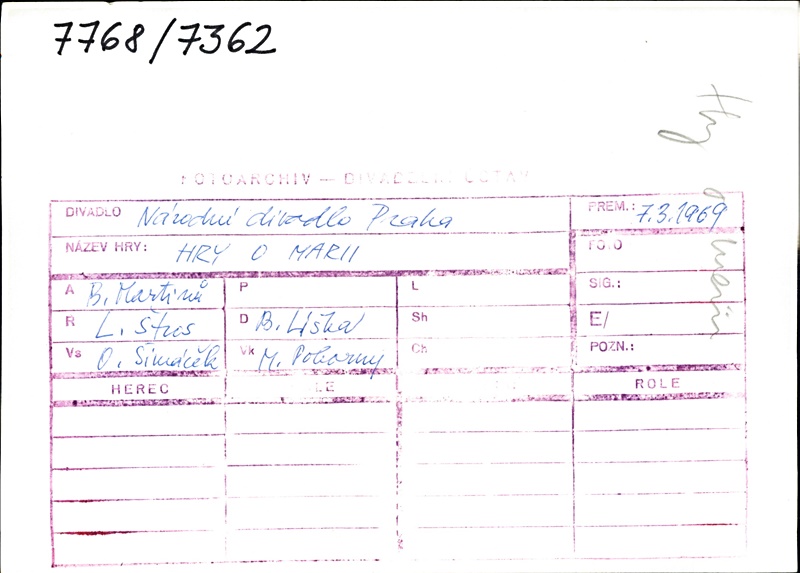 7768/7362
Hry o Marii
FOTOARCHIV — DIVADELNÍ ÚSTAV
DIVADLO Národní divadlo Praha PREM.: 7.3.1969
NÁZEV HRY: HRY O MARII FOTO
A B. Martinů P L SIG.:
R L. Štros D B. Liška Sh E/
Vs O. Šimáček Vk M. Pokorný Ch POZN.:
HEREC ROLE